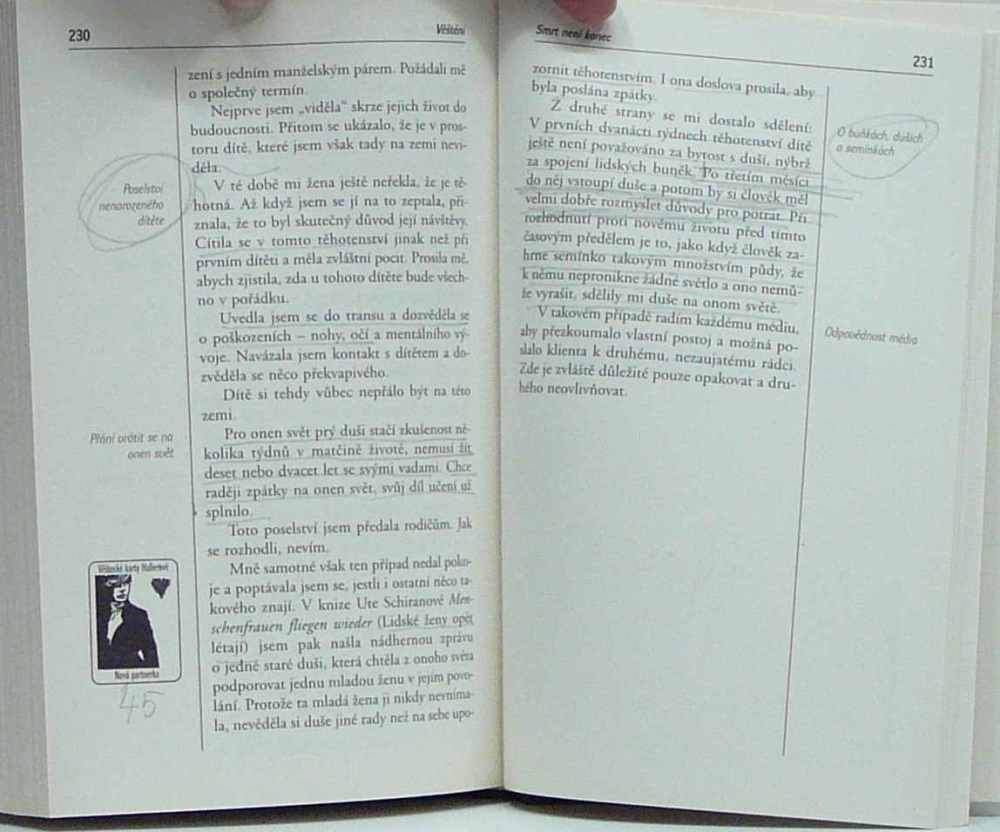 230
Věštění
zení s jedním manželským párem. Požádali mě
o společný termín.
Nejprve jsem „viděla“ skrze jejich život do
budoucnosti. Přitom se ukázalo, že je v pros-
toru dítě, které jsem však tady na zemi nevi-
děla.
Poselství
nenarozeného
dítěte
V té době mi žena ještě neřekla, že je tě-
hotná. Až když jsem se jí na to zeptala, při-
znala, že to byl skutečný důvod její návštěvy.
Cítila se v tomto těhotenství jinak než při
prvním dítěti a měla zvláštní pocit. Prosila mě,
abych zjistila, zda u tohoto dítěte bude všech-
no v pořádku.
Uvedla jsem se do transu a dozvěděla se
o poškozeních – nohy, očí a mentálního vý-
voje. Navázala jsem kontakt s dítětem a do-
zvěděla se něco překvapivého.
Dítě si tehdy vůbec nepřálo být na této
zemi.
Přání vrátit se na
onen svět
Pro onen svět prý duši stačí zkušenost ně-
kolika týdnů v matčině životě, nemusí žít
deset nebo dvacet let se svými vadami. Chce
raději zpátky na onen svět, svůj díl učení už
splnilo.
Toto poselství jsem předala rodičům. Jak
se rozhodli, nevím.
Mně samotné však ten případ nedal poko-
je a poptávala jsem se, jestli i ostatní něco ta-
kového znají. V knize Ute Schiranové Men-
schenfrauen fliegen wieder (Lidské ženy opět
létají) jsem pak našla nádhernou zprávu
o jedné staré duši, která chtěla z onoho světa
podporovat jednu mladou ženu v jejím povo-
lání. Protože ta mladá žena ji nikdy nevníma-
la, nevěděla si duše jiné rady než na sebe upo-
Věštecké karty
Nová partnerka
45
Smrt není konec
231
zornit těhotenstvím. I ona doslova prosila, aby
byla poslána zpátky.
Z druhé strany se mi dostalo sdělení:
V prvních dvanácti týdnech těhotenství dítě
ještě není považováno za bytost s duší, nýbrž
za spojení lidských buněk. Po třetím měsíci
do něj vstoupí duše a potom by si člověk měl
velmi dobře rozmyslet důvody pro potrat. Při
rozhodnutí proti novému životu před tímto
časovým předělem je to, jako když člověk za-
hrne semínko takovým množstvím půdy, že
k němu nepronikne žádné světlo a ono nemů-
že vyrašit, sdělily mi duše na onom světě.
O buňkách, duších
a semínkách
V takovém případě radím každému médiu,
aby přezkoumalo vlastní postoj a možná po-
slalo klienta k druhému, nezaujatému rádci.
Zde je zvláště důležité pouze opakovat a dru-
hého neovlivňovat.
Odpovědnost média